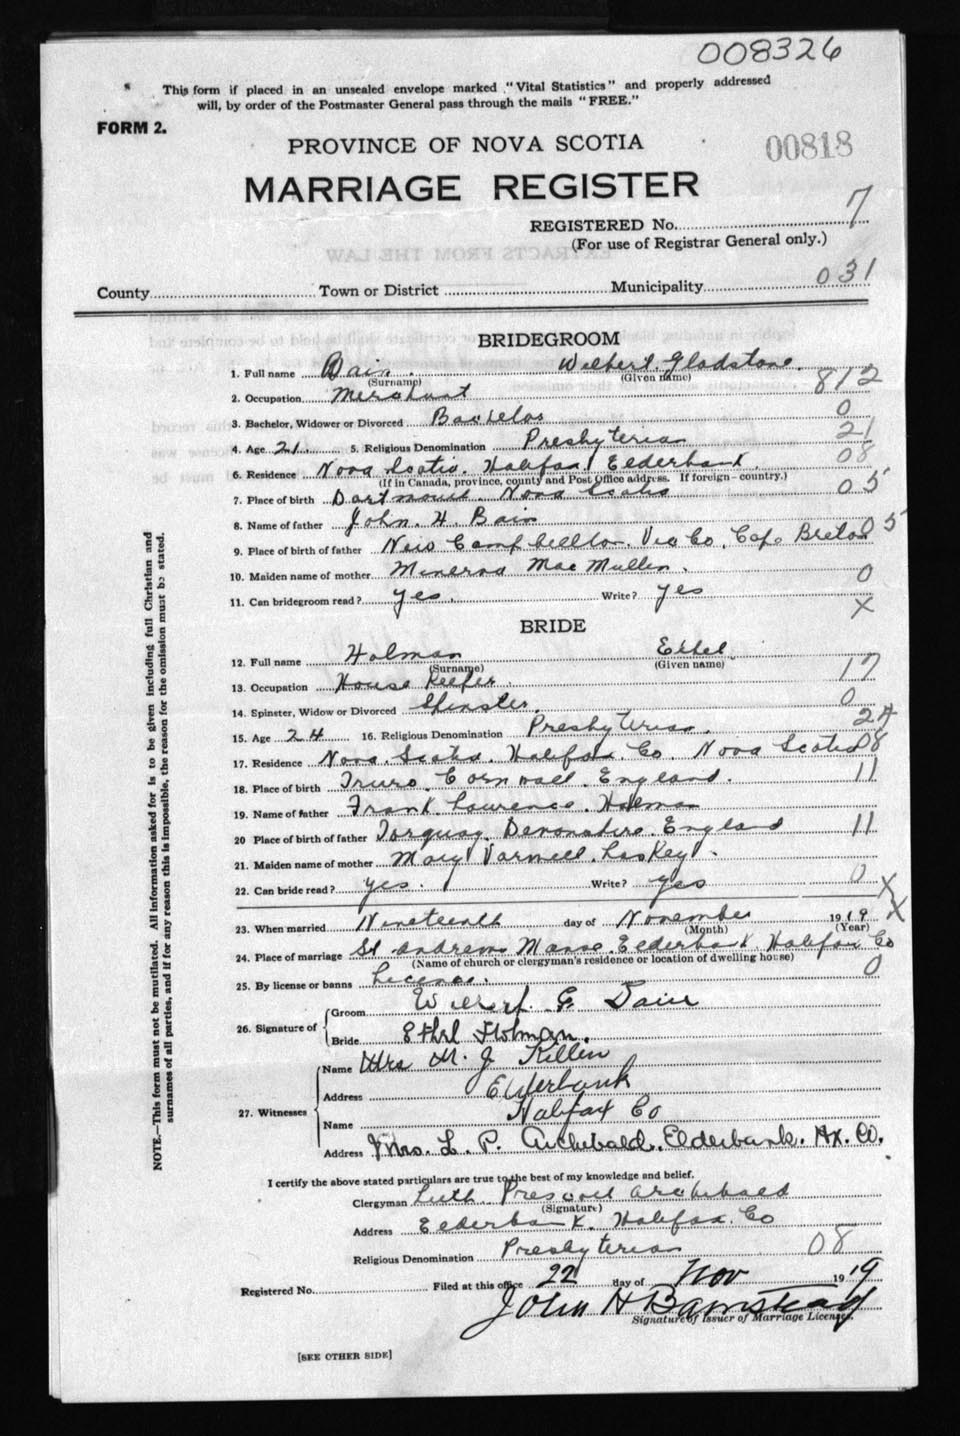 008326
This form if placed in an unsealed envelope marked "Vital Statistics" and properly addressed
will, by order of the Postmaster General pass through the mails "FREE."
FORM 2.
PROVINCE OF NOVA SCOTIA
00818
MARRIAGE REGISTER
REGISTERED No. 7
(For use of Registrar General only.)
County Town or District Municipality 031
BRIDEGROOM
1. Full name Bain Wilbert Gladstone.
(Surname) (Given name)
2. Occupation Merchant 812
3. Bachelor, Widower or Divorced Bachelor 0
4. Age 21 5. Religious Denomination Presbyterian 21
6. Residence Nova Scotia. Halifax Elderbank. 08
(If in Canada, province, county and Post Office address. If foreign - country.)
7. Place of birth Dartmouth. Nova Scotia 05
8. Name of father John. H. Bain
9. Place of birth of father New Campbellton. Vic Co. Cape Breton 05
10. Maiden name of mother Minerva MacMullen.
11. Can bridegroom read? yes. Write? yes 0
X
BRIDE
12. Full name Holman Ethel
(Surname) (Given name)
13. Occupation House Keeper. 17
14. Spinster, Widow or Divorced Spinster. 0
15. Age 24 16. Religious Denomination Presbyterian. 24
17. Residence Nova. Scotia. Halifax. Co. Nova Scotia 08
18. Place of birth Truro. Cornwall. England. 11
19. Name of father Frank Laurence. Holman
20 Place of birth of father Torquay. Devonshire. England 11
21. Maiden name of mother Mary Laskey.
22. Can bride read? yes. Write? yes 0 X
23. When married Nineteenth day of November 1919 X
(Month) (Year)
24. Place of marriage St Andrews Manse. Elderbank. Halifax Co
(Name of church or clergyman's residence or location of dwelling house)
25. By license or banns License. 0
26. Signature of Groom Wilbert G Bain
Bride Ethel Holman.
27. Witnesses Name Mrs M. J Killen
Address Elderbank
Halifax Co
Name
Address Mrs. L. P. Archibald. Elderbank. Hx. Co.
I certify the above stated particulars are true to the best of my knowledge and belief.
Clergyman Luth Prescott Archibald
(Signature)
Address Elderbank. Halifax. Co
Religious Denomination Presbyterian 08
Registered No. Filed at this office 22 day of Nov 1919
John H Barnstead
Signature of Issuer of Marriage Licenses.
[SEE OTHER SIDE]
NOTE.—This form must not be mutilated. All information asked for is to be given including full Christian and
surnames of all parties, and if for any reason this is impossible, the reason for the omission must be stated.